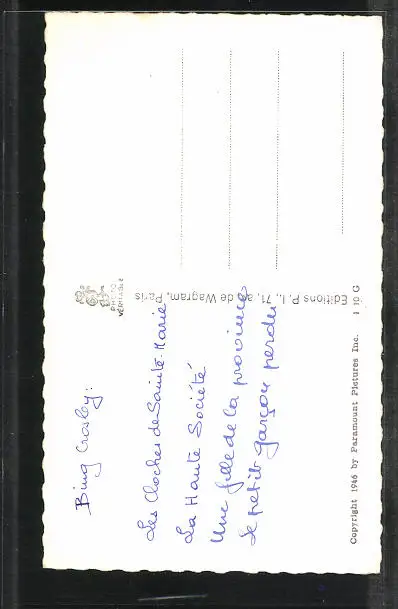 Bing Crosby:
Les Cloches de Sainte-Marie
La Haute Société
Une fille de la province
Le petit garçon perdu
Copyright 1946 by Paramount Pictures Inc. 110 G
Editions P. I., 71, av. de Wagram, Paris
PHOTO
VÉRITABLE